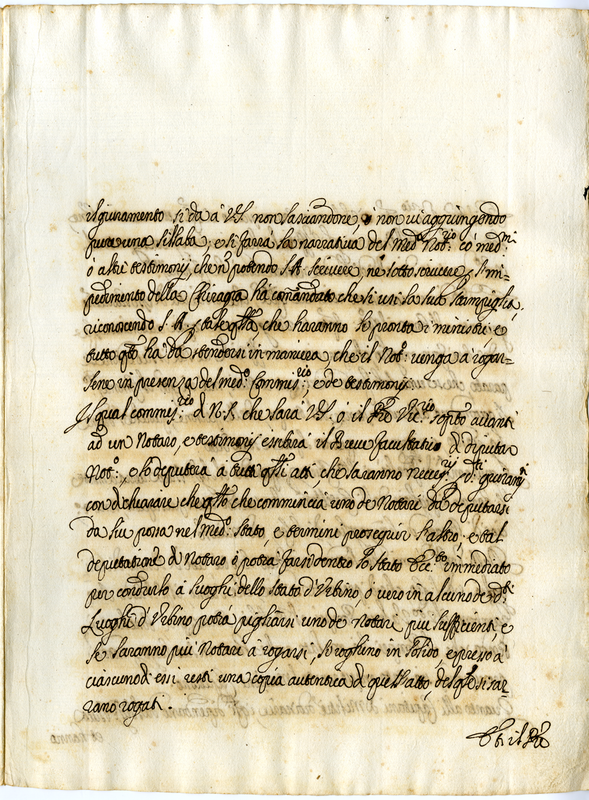 il giuramento si dà à VS. non lasciandone, ò non ui aggiungendo
pure una sillaba, e si farrà la narratiua del med.º Not.rio co med.mi
ò altri testimonij che nō potendo S.A. scriuere, nè sottoscriuere, p l'im-
pedimento della Chiragra hà comandato che si usi la sua stampiglia,
riconoscendo S.A. p tale q̄lla che haranno le pronta i ministri, e
tutto q̄to hà da stendersi in maniera, che il Not.º uenga à rogar-
sene in presenza del med.º Commis.rio, e de testimonij
Il qual commis.rio d N.S. che sarà VS. ò il Vic.rio sop.to auanti
ad un Notaro, e testimonij esibirà il Breue facultatiuo d diputar
Not.º, e lo deputerà à tutti q̄lli atti, che saranno necess.rij p d.ti giuram.ti
con dichiarare che q̄llo che comincia uno de Notari da deputarsi
da lui possa nel med.º Stato, e termini proseguir l'altro, e tal
deputatione d Notaro ò potrà farsi dentro lo stato Ecc.co immediato
per condurlo à luoghi dello stato d'Urbino, ò uero in alcuno de d.ti
Luoghi d'Urbino potrà pigliarsi uno de notari più sufficienti, e
se saranno più Notari à rogarsi, si roghino in solido, e presso à
ciascuno d essi resti una copia autentica d quell'atto, del q̄le si sa-
ranno rogati.